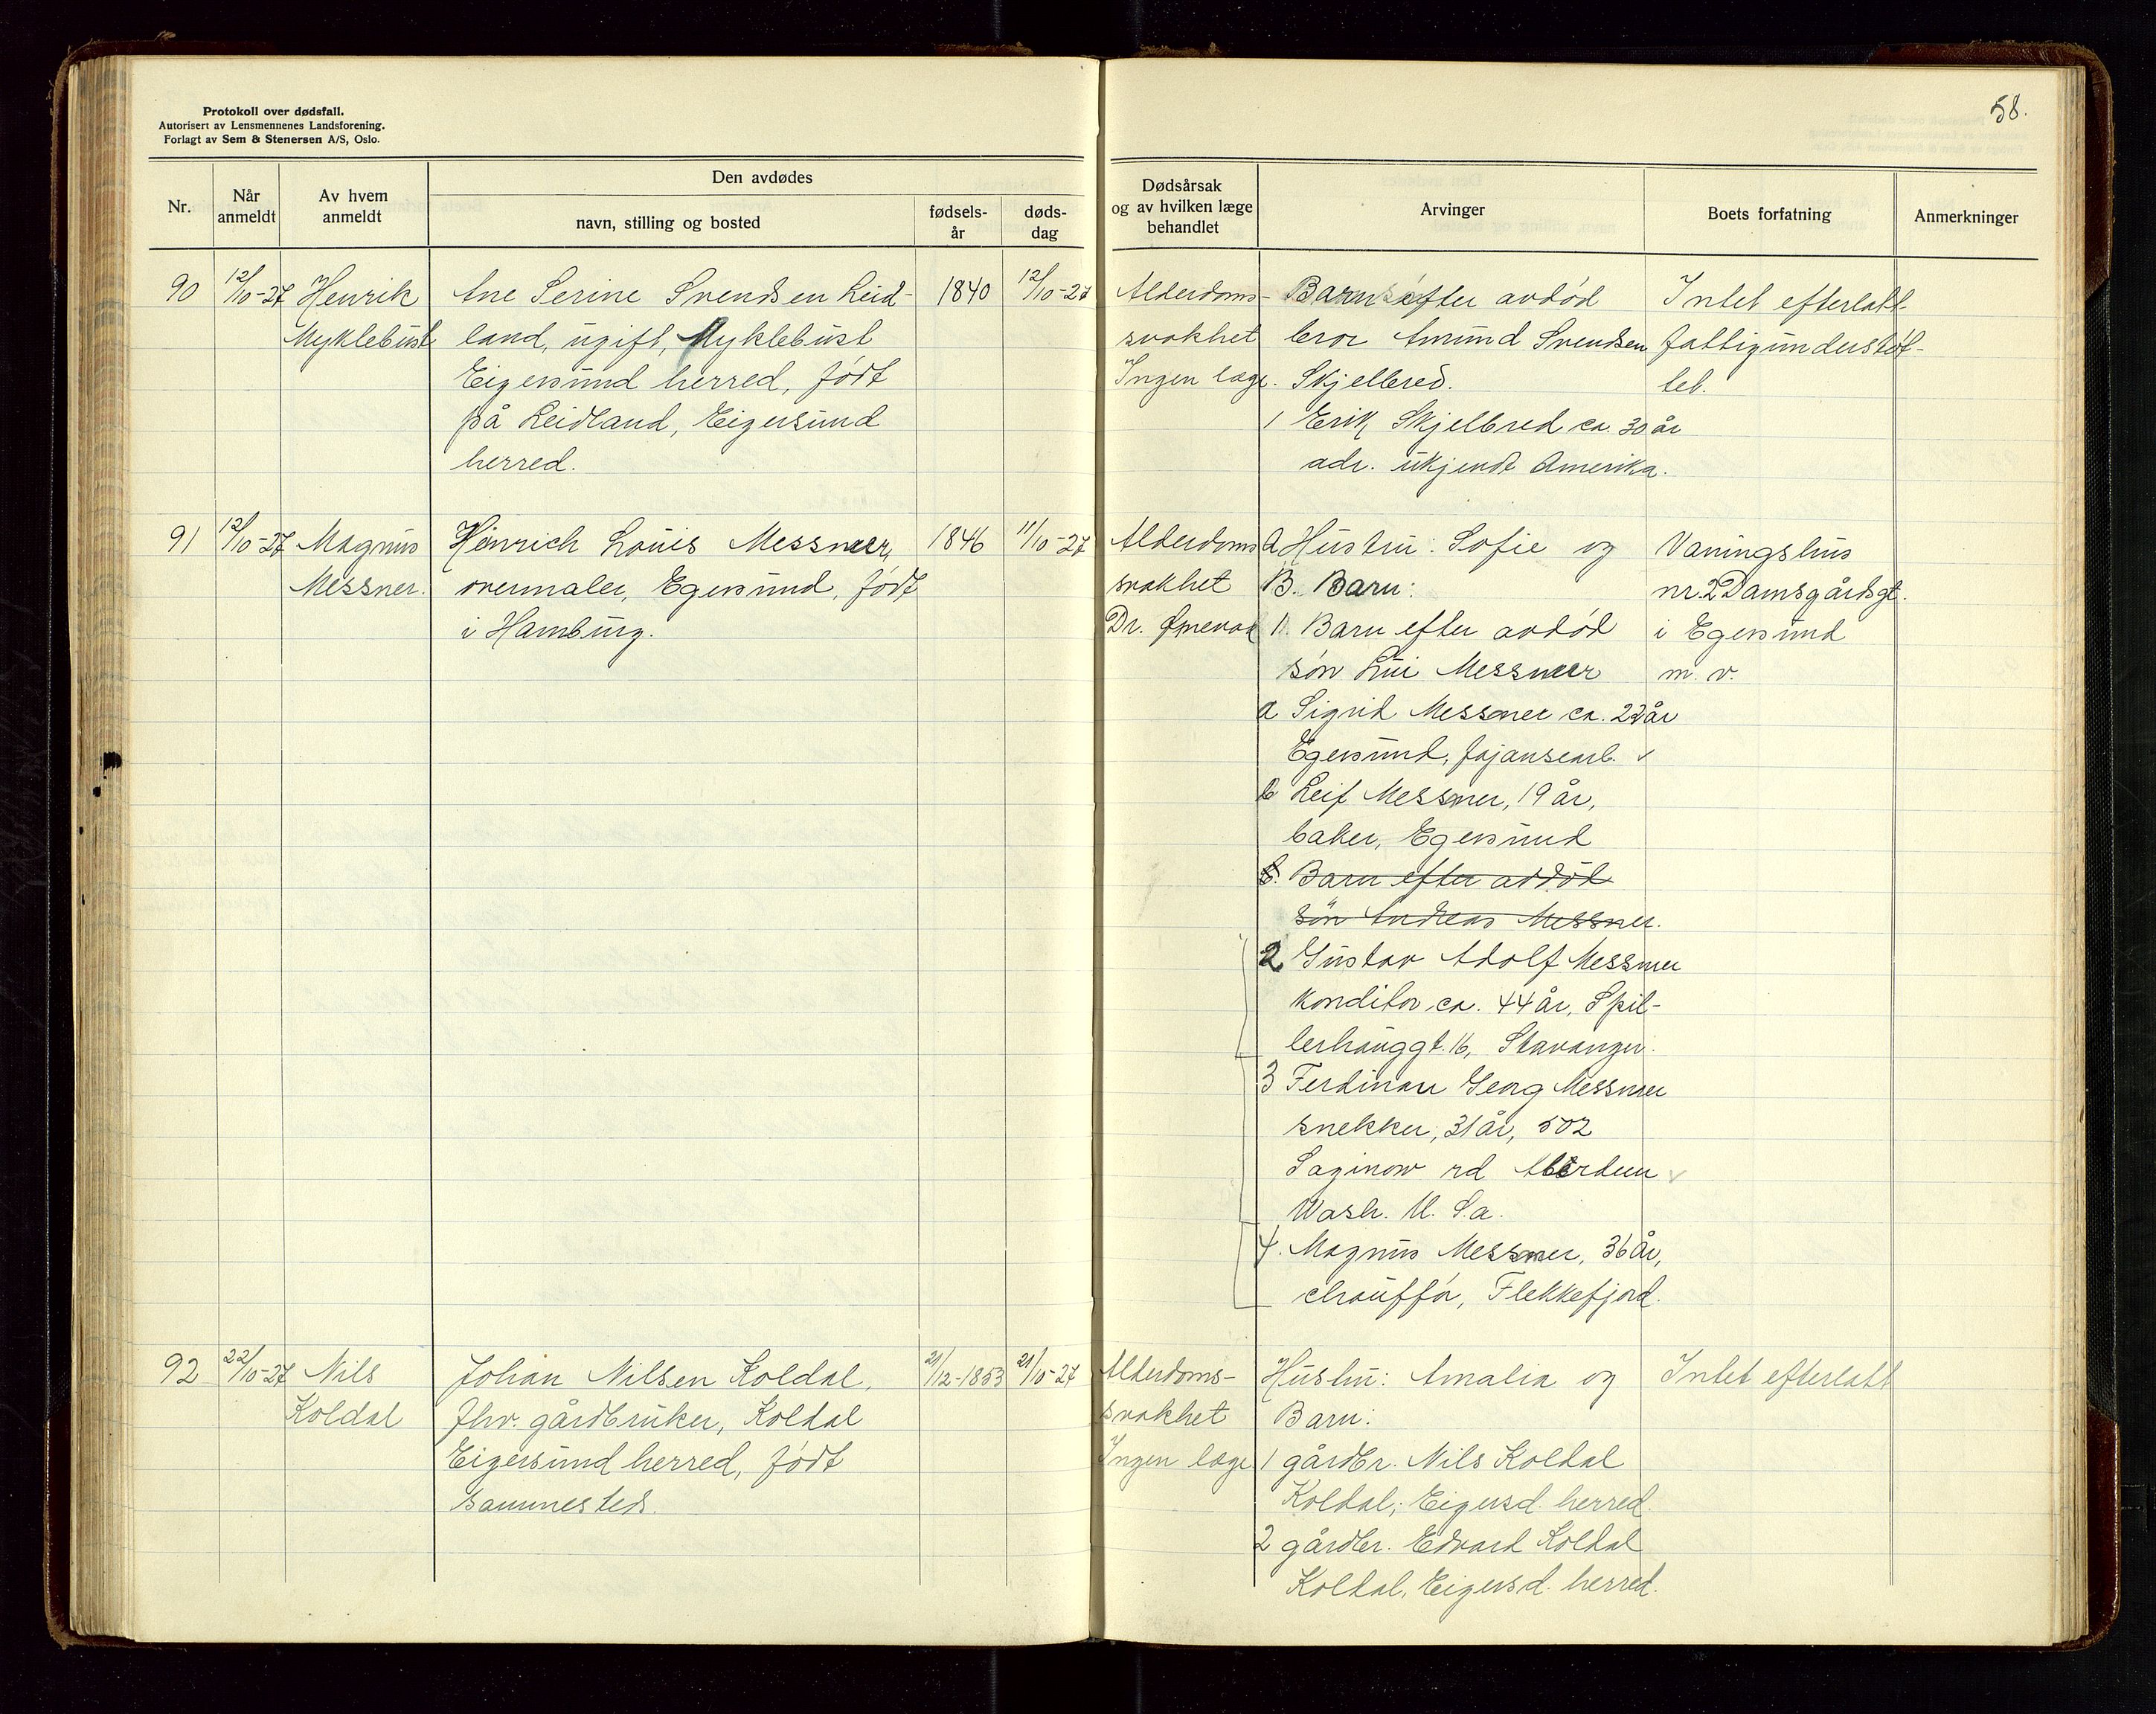 58.
Protokoll over dødsfall.
Autorisert av Lensmennenes Landsforening.
Forlagt av Sem & Stenersen A/S, Oslo.
Nr.
Når anmeldt
Av hvem anmeldt
Den avdødes
navn, stilling og bosted
fødselsår
dødsdag
Dødsårsak
og av hvilken læge
behandlet
Arvinger
Boets forfatning
Anmerkninger
90
12/10-27
Henrik
Myklebust
Ane Serine Svendsen Leid-
land, ugift, Myklebust
Eigersund herred, født
på Leidland, Eigersund
herred.
1840
12/10-27
Alderdoms-
svakhet
Ingen læge.
Barn efter avdød
bror Amund Svendsen
Skjelbred.
1 Erik Skjelbred ca. 30 år
adr. ukjendt Amerika.
Intet efterlatt
fattigunderstøt-
tet.
91
12/10-27
Magnus
Messner.
Hinrich Louis Messner,
overmaler, Egersund, født
i Hamburg.
1846
11/10-27
Alderdoms
svakhet
Dr.
A Hustru: Sofie og
B. Barn:
1. Barn efter avdød
søn Lui Messner
a Sigrid Messner ca. år
Egersund, fajansearb.
b Leif Messner, 19 år,
baker, Egersund
Barn efter avdød
søn Andreas Messner.
2 Gustav Adolf Messner
konditor ca. 44 år, Spil-
lerhauggt. 16, Stavanger.
3 Ferdinan Georg Messner
snekker, 31 år, 502
Saginow rd Aberdeen
Wash. U. S. a.
4. Magnus Messner, 36 år,
chauffør, Flekkefjord.
Vaningshus
nr. 2 Damsgårdsgt.
i Egersund
m. v.
92
22/10-27
Nils
Koldal
Johan Nilsen Koldal,
fhv. gårdbruker, Koldal
Eigersund herred, født
sammesteds.
21/12-1853
21/10-27
Alderdoms-
svakhet
Ingen læge
Hustru: Amalia og
Barn:
1 gårdbr. Nils Koldal
Koldal, Eigersd. herred.
2 gårdbr. Edvard Koldal
Koldal, Eigersd. herred.
Intet efterlatt